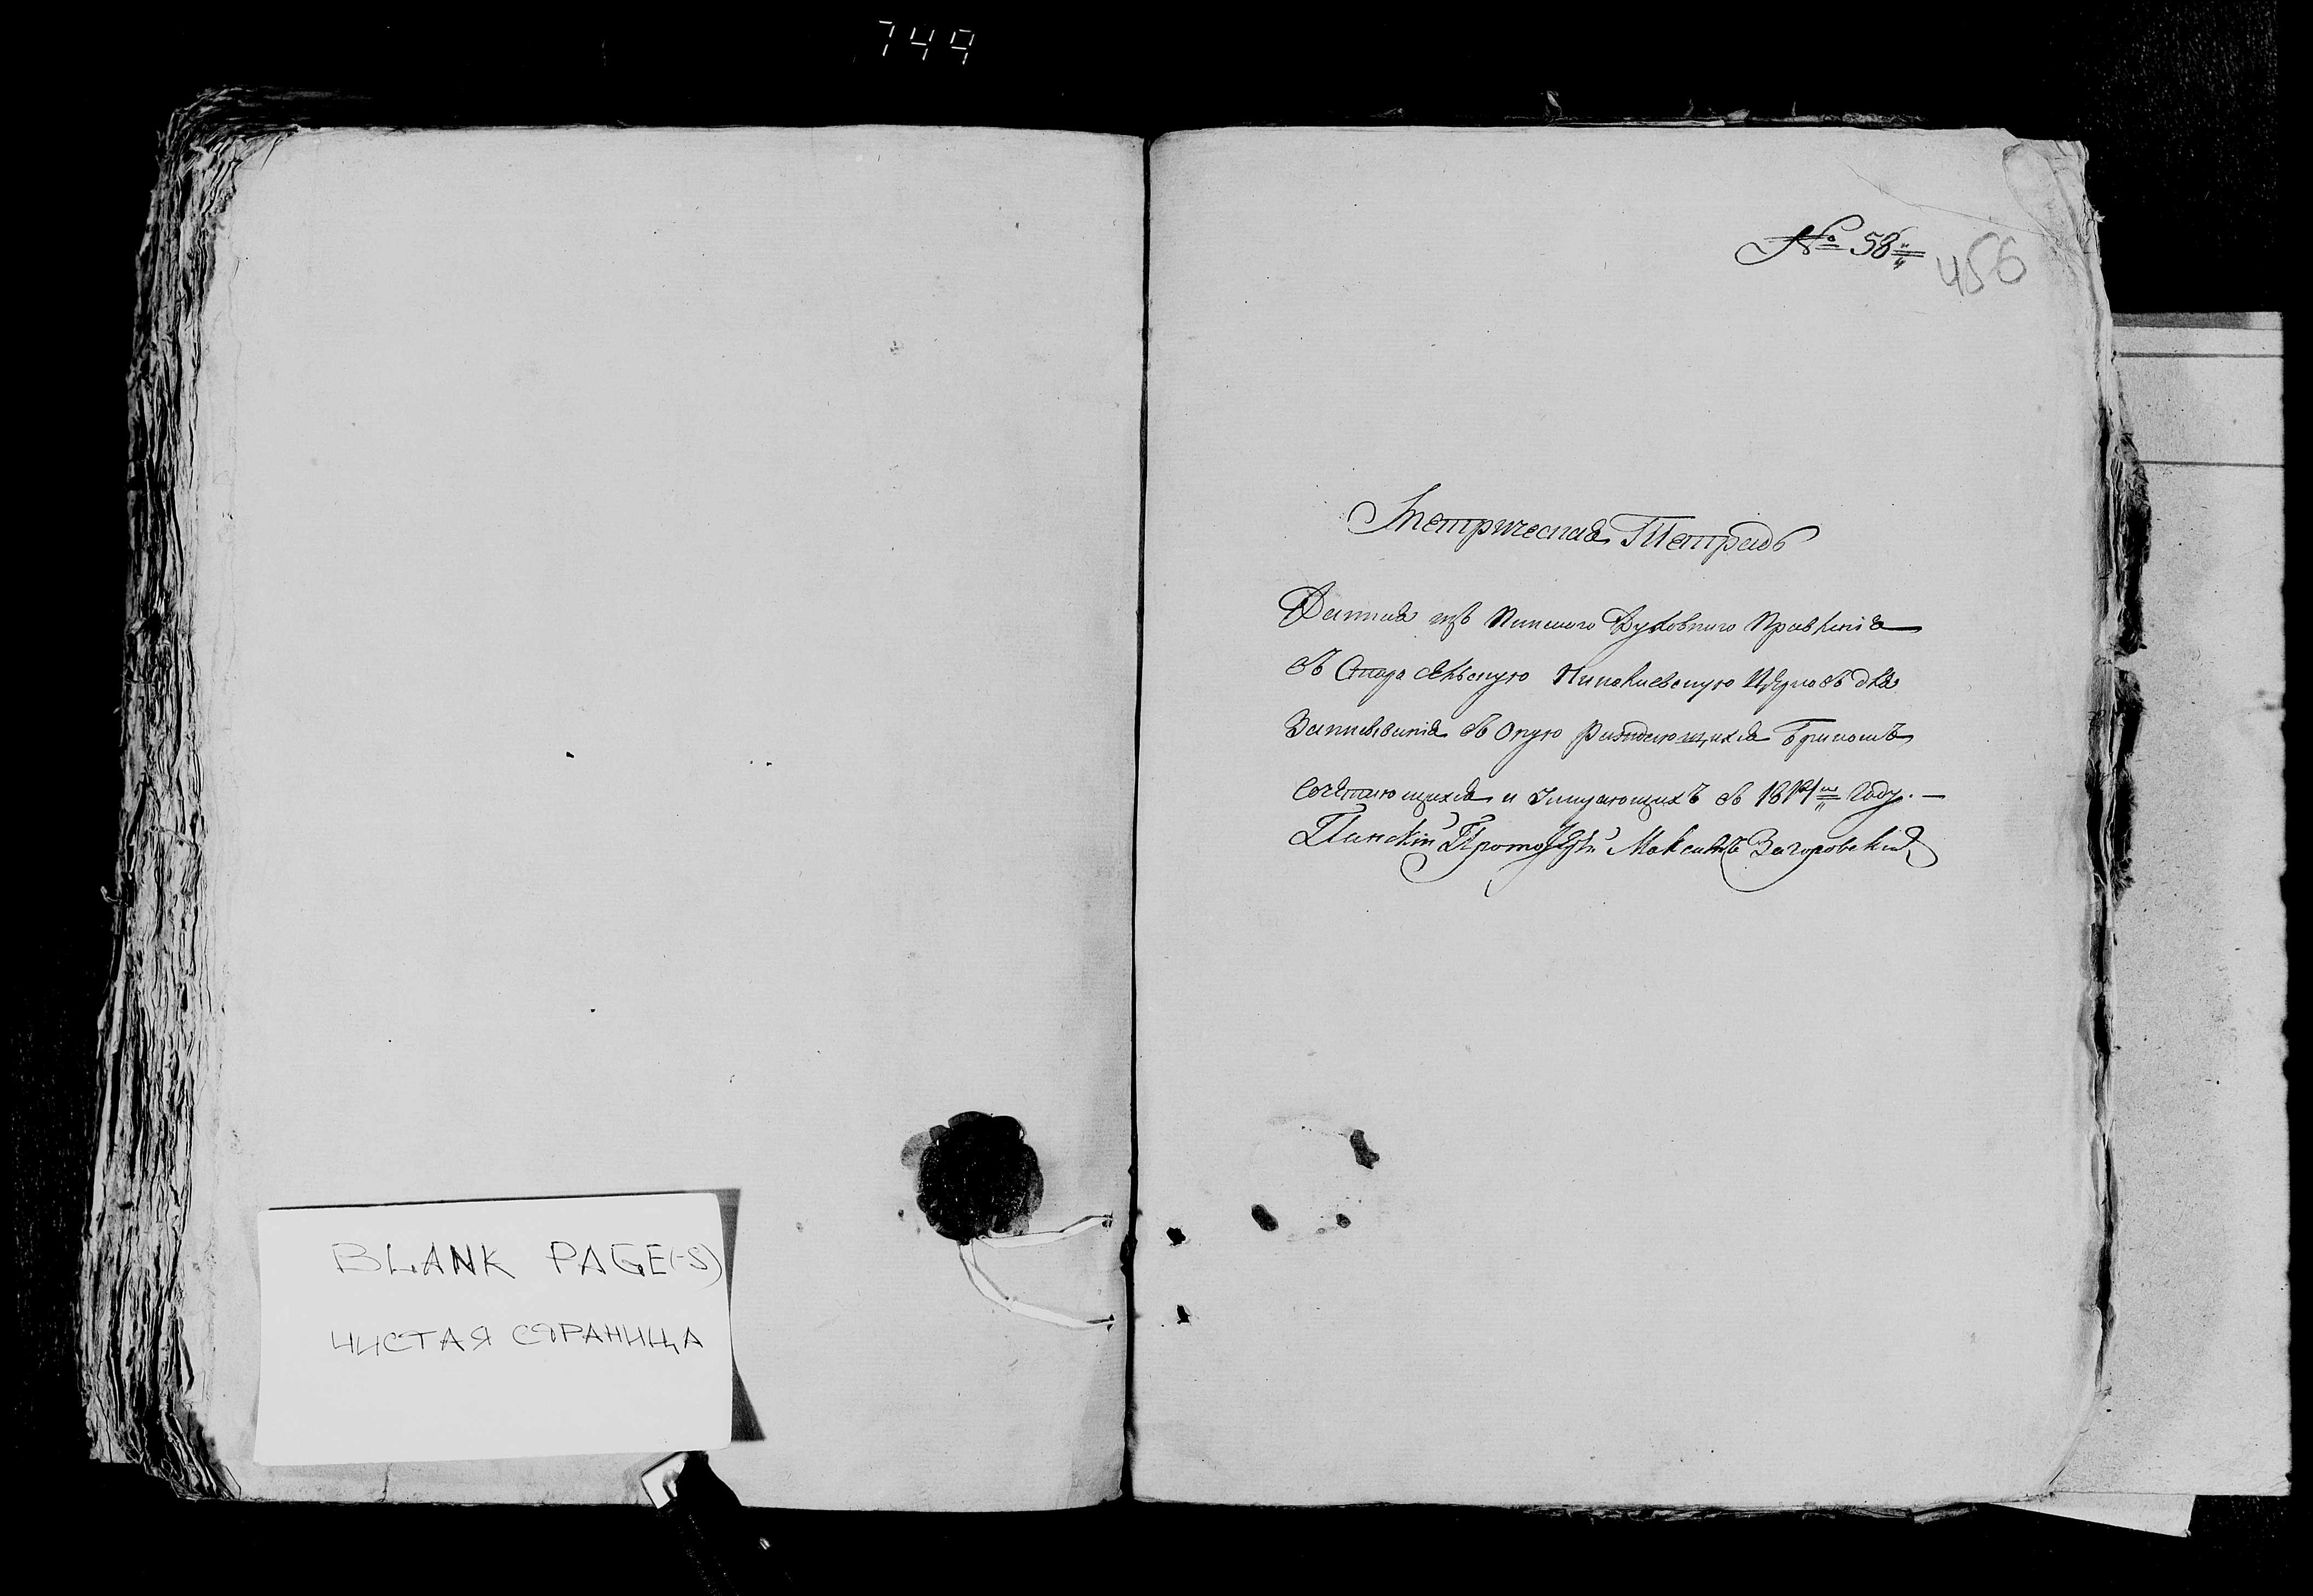 749
№ 58
456
Метрическая Тетрадь
Данная изъ Пинскаго Духовнаго Правленія
въ Старосельскую Церковь для
Записыванія въ оную раждающихся бракомъ
сочетающихся и умирающихъ въ 1814м году. —
Пинскій Протоіерей Максимъ Загоровскій
BLANK PAGE(-S)
ЧИСТАЯ СТРАНИЦА